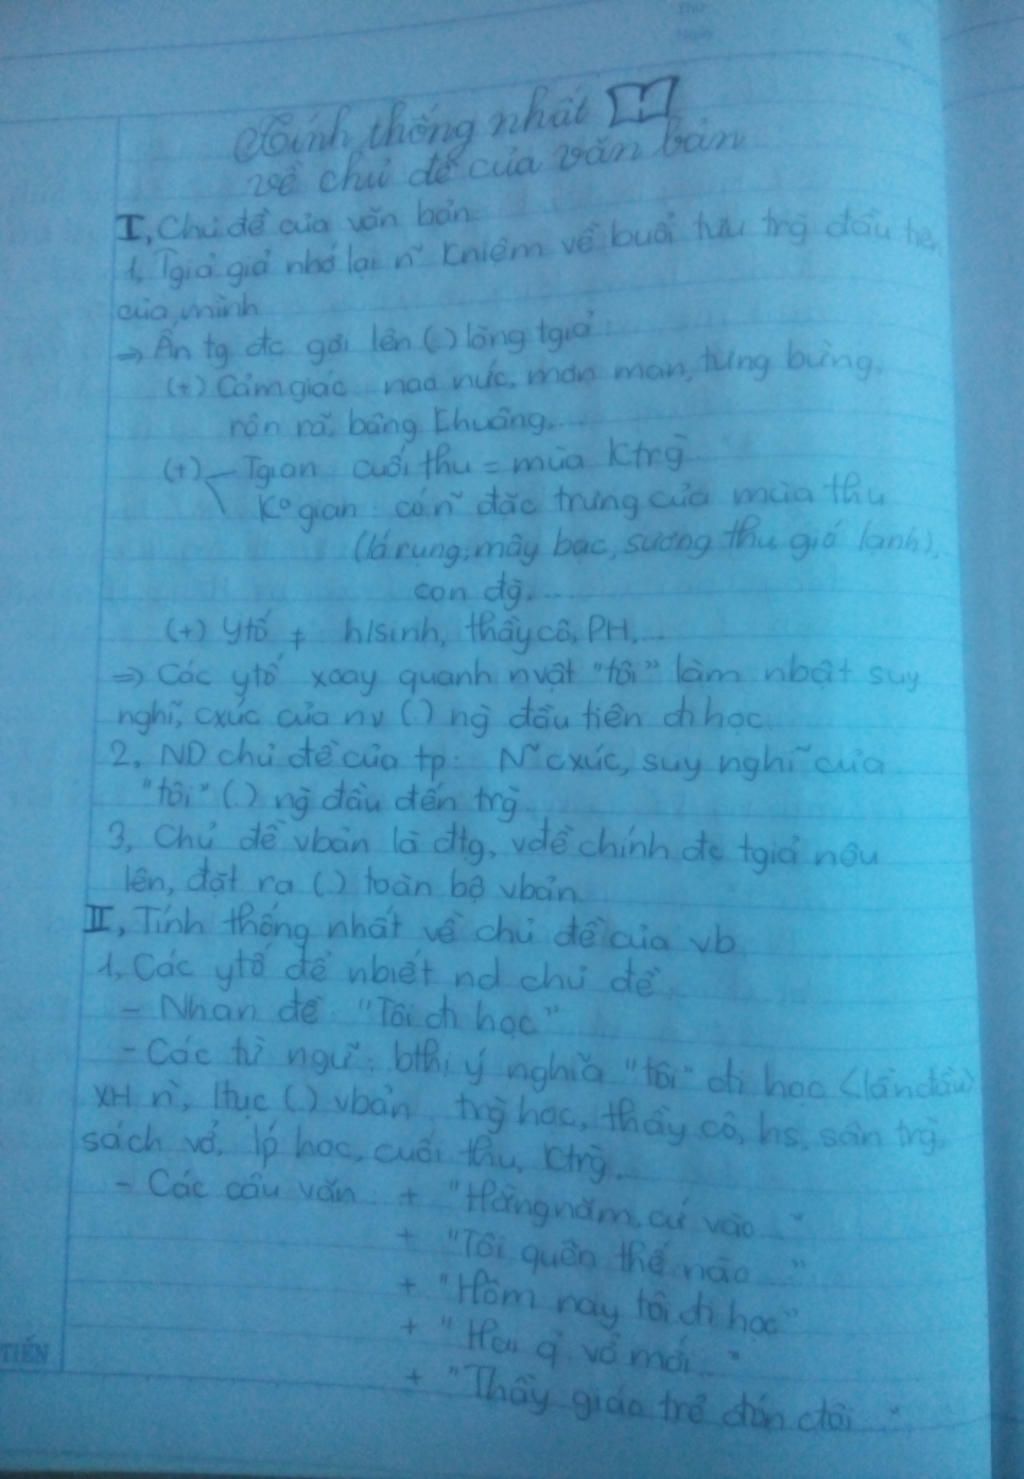 Thứ
Ngày
Tính thống nhất
về chủ đề của văn bản
I, Chủ đề của văn bản
1, Tgiả giả nhớ lại n~ kniệm về buổi tựu trg đầu tiên
của mình
=> Ấn tg đc gợi lên ( ) lòng tgiả
(+) Cảm giác nao nức, mơn man, tưng bừng,
rộn rã, bâng khuâng,...
(+) Tgian cuối thu = mùa ktrg
Ko gian: có n~ đặc trưng của mùa thu
(lá rụng, mây bạc, sương thu gió lạnh),
con đg,...
(+) Ytố ≠ h/sinh, thầy cô, PH,...
=> Các ytố xoay quanh nvật "tôi" làm nbật suy
nghĩ, cxúc của nv (.) ng đầu tiên đi học
2, ND chủ đề của tp: N~ cxúc, suy nghĩ của
"tôi" (.) ng đầu đến trg
3, Chủ đề vbản là đtg, vđề chính đc tgiả nêu
lên, đặt ra ( ) toàn bộ vbản
II, Tính thống nhất về chủ đề của vb
1, Các ytố để nbiết nd chủ đề
- Nhan đề: "Tôi đi học"
- Các từ ngữ: bthị ý nghĩa "tôi" đi học (lần đầu)
XH n`, ltục (.) vbản, trg học, thầy cô, hs, sân trg,
sách vở, lớp học, cuối thu, ktrg,
- Các câu văn: + "Hằng năm, cứ vào..."
+ "Tôi quên thế nào..."
+ "Hôm nay tôi đi học"
+ "Hai q vở mới..."
+ "Thầy giáo trẻ đón ctôi..."
TIẾN